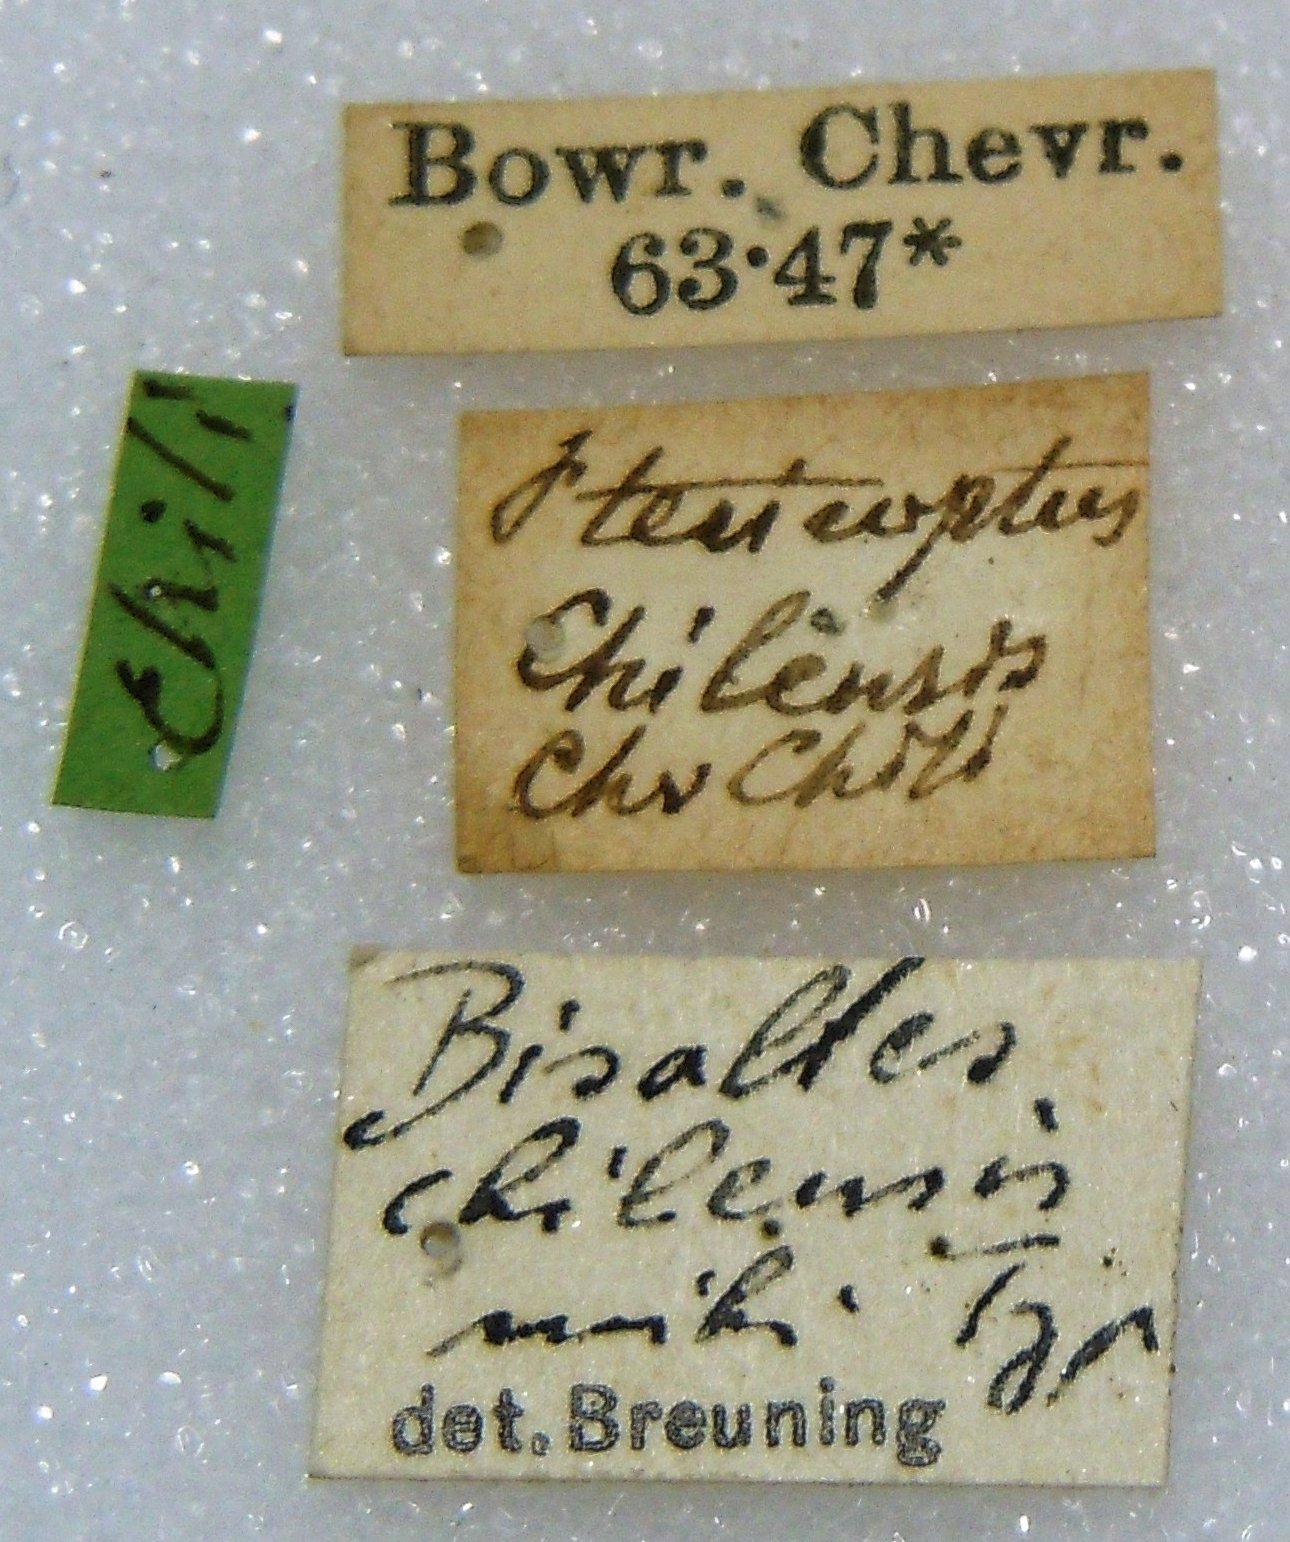 Bowr. Chevr.
63·47*
Chili
Chilensis
Chv Chili
Bisaltes
chilensis
mihi Typ
det. Breuning